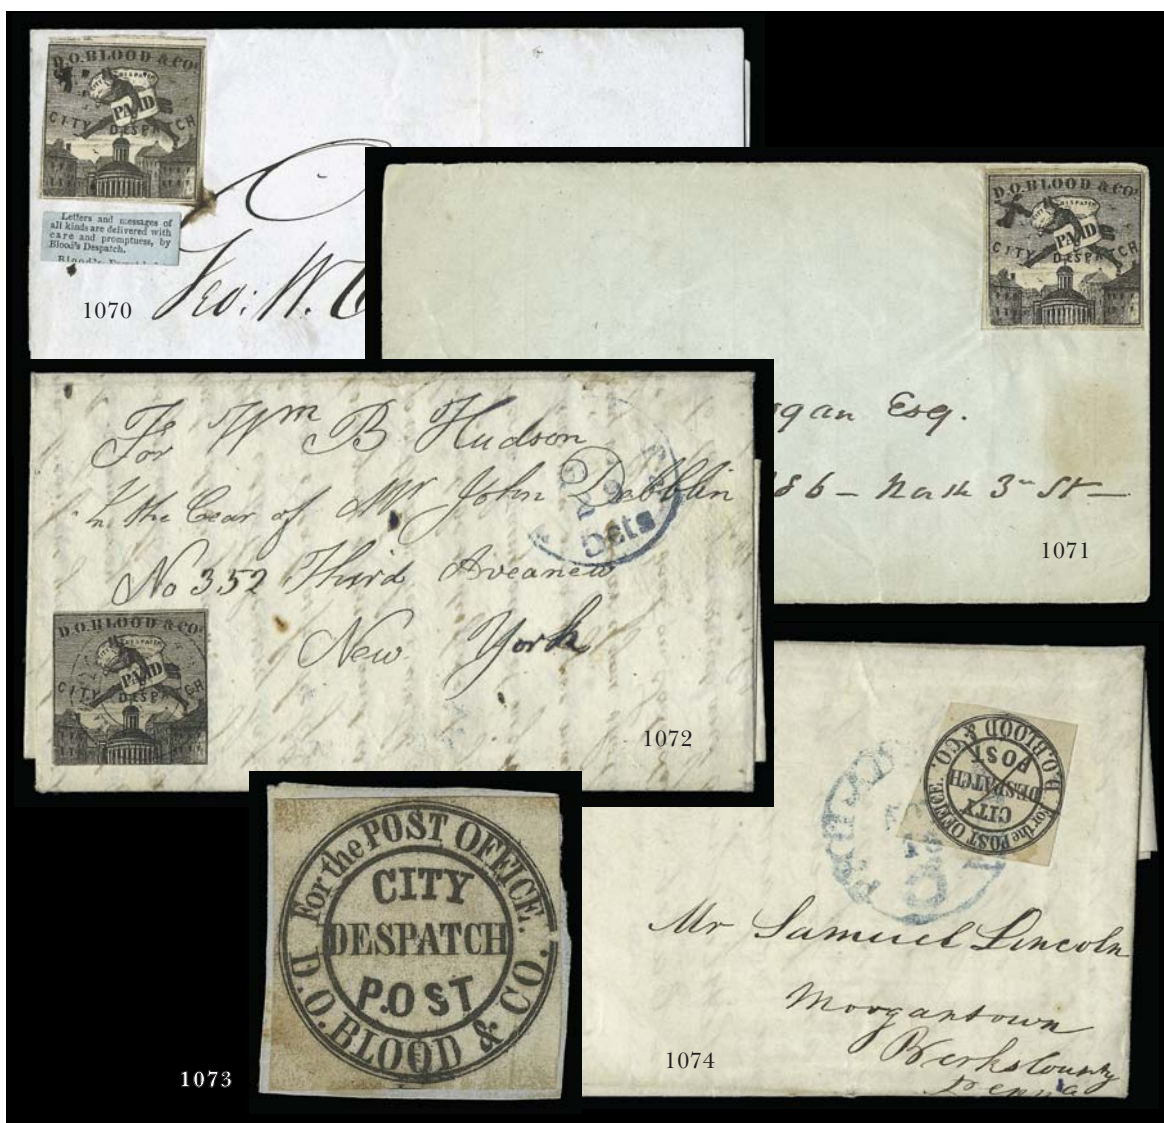 D.O. BLOOD & Co's
CITY DESPATCH
PAID
CITY DESPATCH
Letters and messages of
all kinds are delivered with
care and promptness, by
Blood's Despatch.
1070
Geo: W.
D.O. BLOOD & Co's
CITY DESPATCH
PAID
CITY DESPATCH
gan Esq.
86 - North 3rd St -
1071
For Wm B Hudson
In the Cear of Mr John
No 352 Third Aveanew
New York
5cts
D.O. BLOOD & Co's
CITY DESPATCH
PAID
CITY DESPATCH
1072
For the POST OFFICE.
CITY
DESPATCH
POST
D.O. BLOOD & CO.
1073
For the POST OFFICE.
CITY
DESPATCH
POST
D.O. BLOOD & CO.
Mr Samuel Lincoln
Morgantown
Berks County
Penna
1074